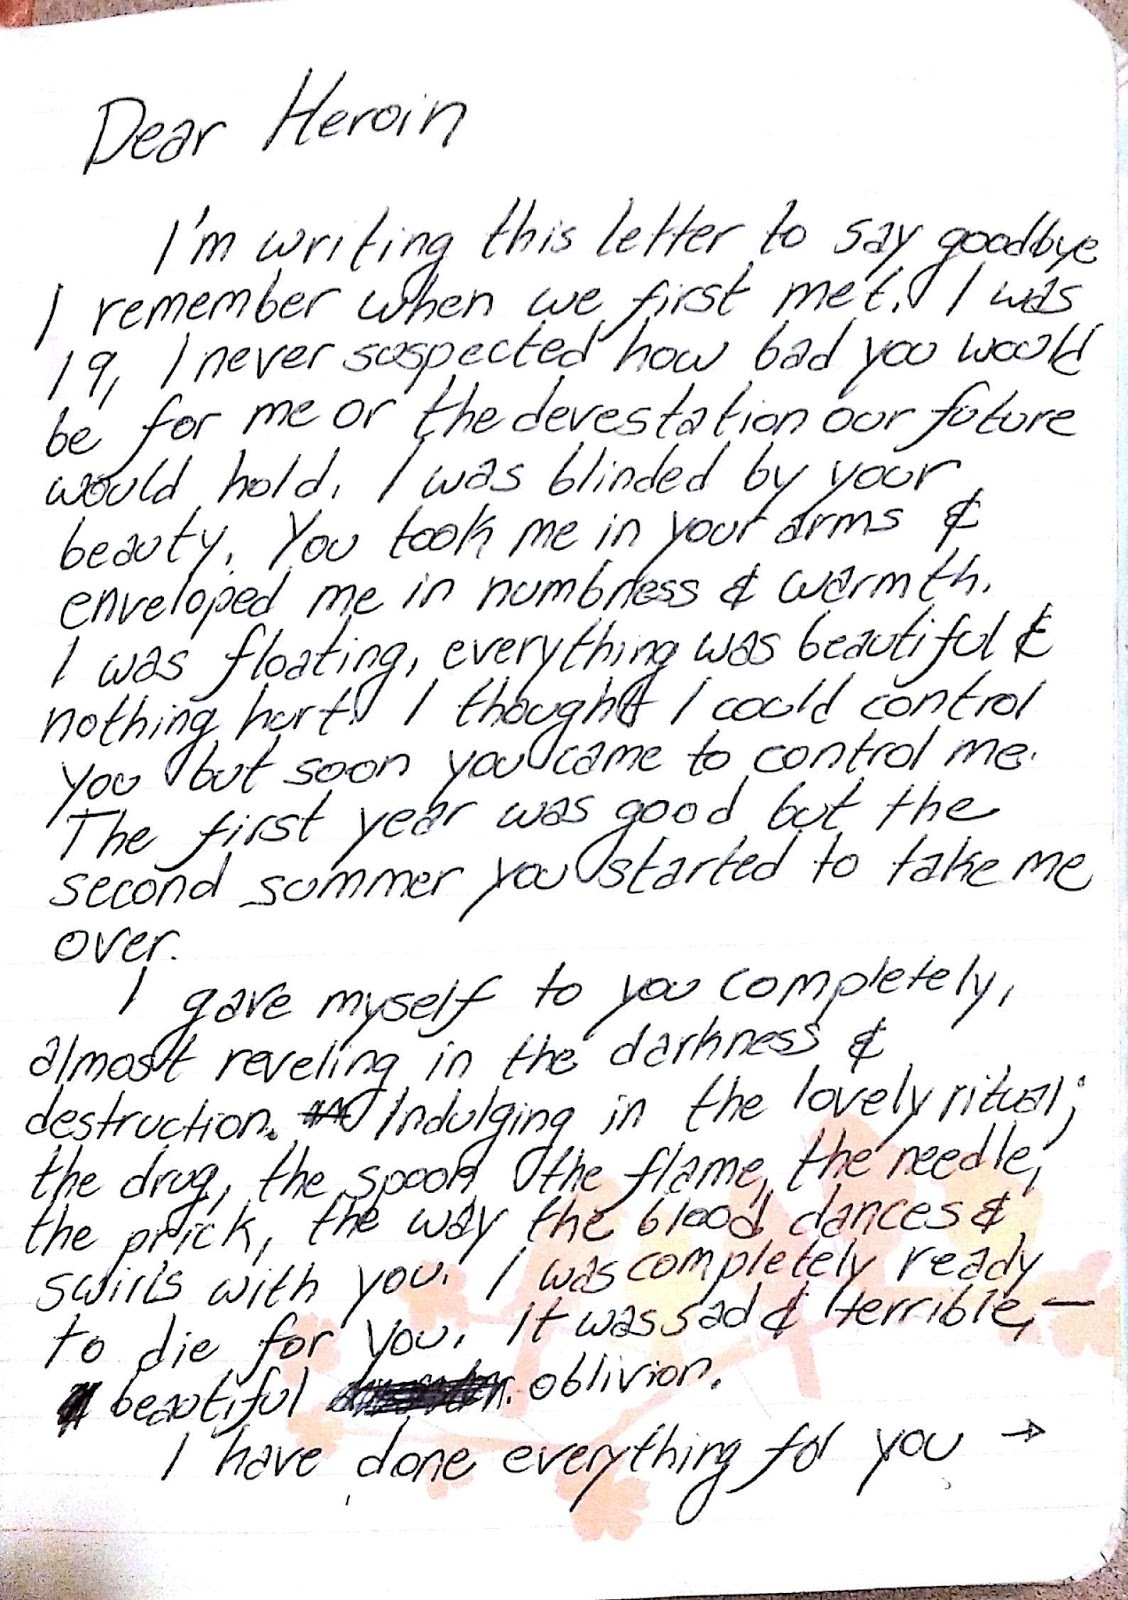 Dear Heroin
I'm writing this letter to say goodbye
I remember when we first met. I was
19, I never suspected how bad you would
be for me or the devestation our future
would hold. I was blinded by your
beauty. You took me in your arms &
enveloped me in numbness & warmth.
I was floating, everything was beautiful &
nothing hurt. I thought I could control
you but soon you came to control me.
The first year was good but the
second summer you started to take me
over.
I gave myself to you completely,
almost reveling in the darkness &
destruction. Indulging in the lovely ritual;
the drug, the spoon the flame, the needle,
the prick, the way the blood dances &
swirls with you. I was completely ready
to die for you. It was sad & terrible, —
beautiful oblivion.
I have done everything for you →